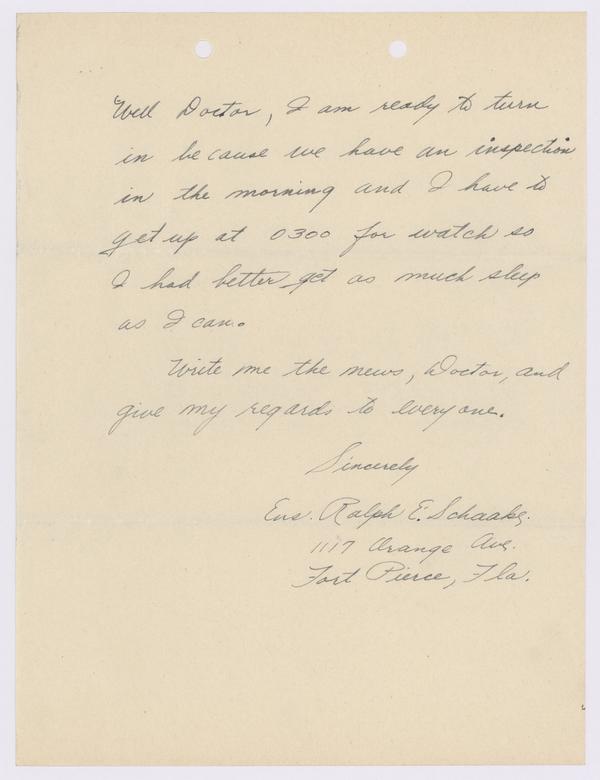 Well Doctor, I am ready to turn
in because we have an inspection
in the morning and I have to
get up at 0300 for watch so
I had better get as much sleep
as I can.
Write me the news, Doctor, and
give my regards to everyone.
Sincerely
Ens. Ralph E. Schaake.
1117 Orange Ave.
Fort Pierce, Fla.